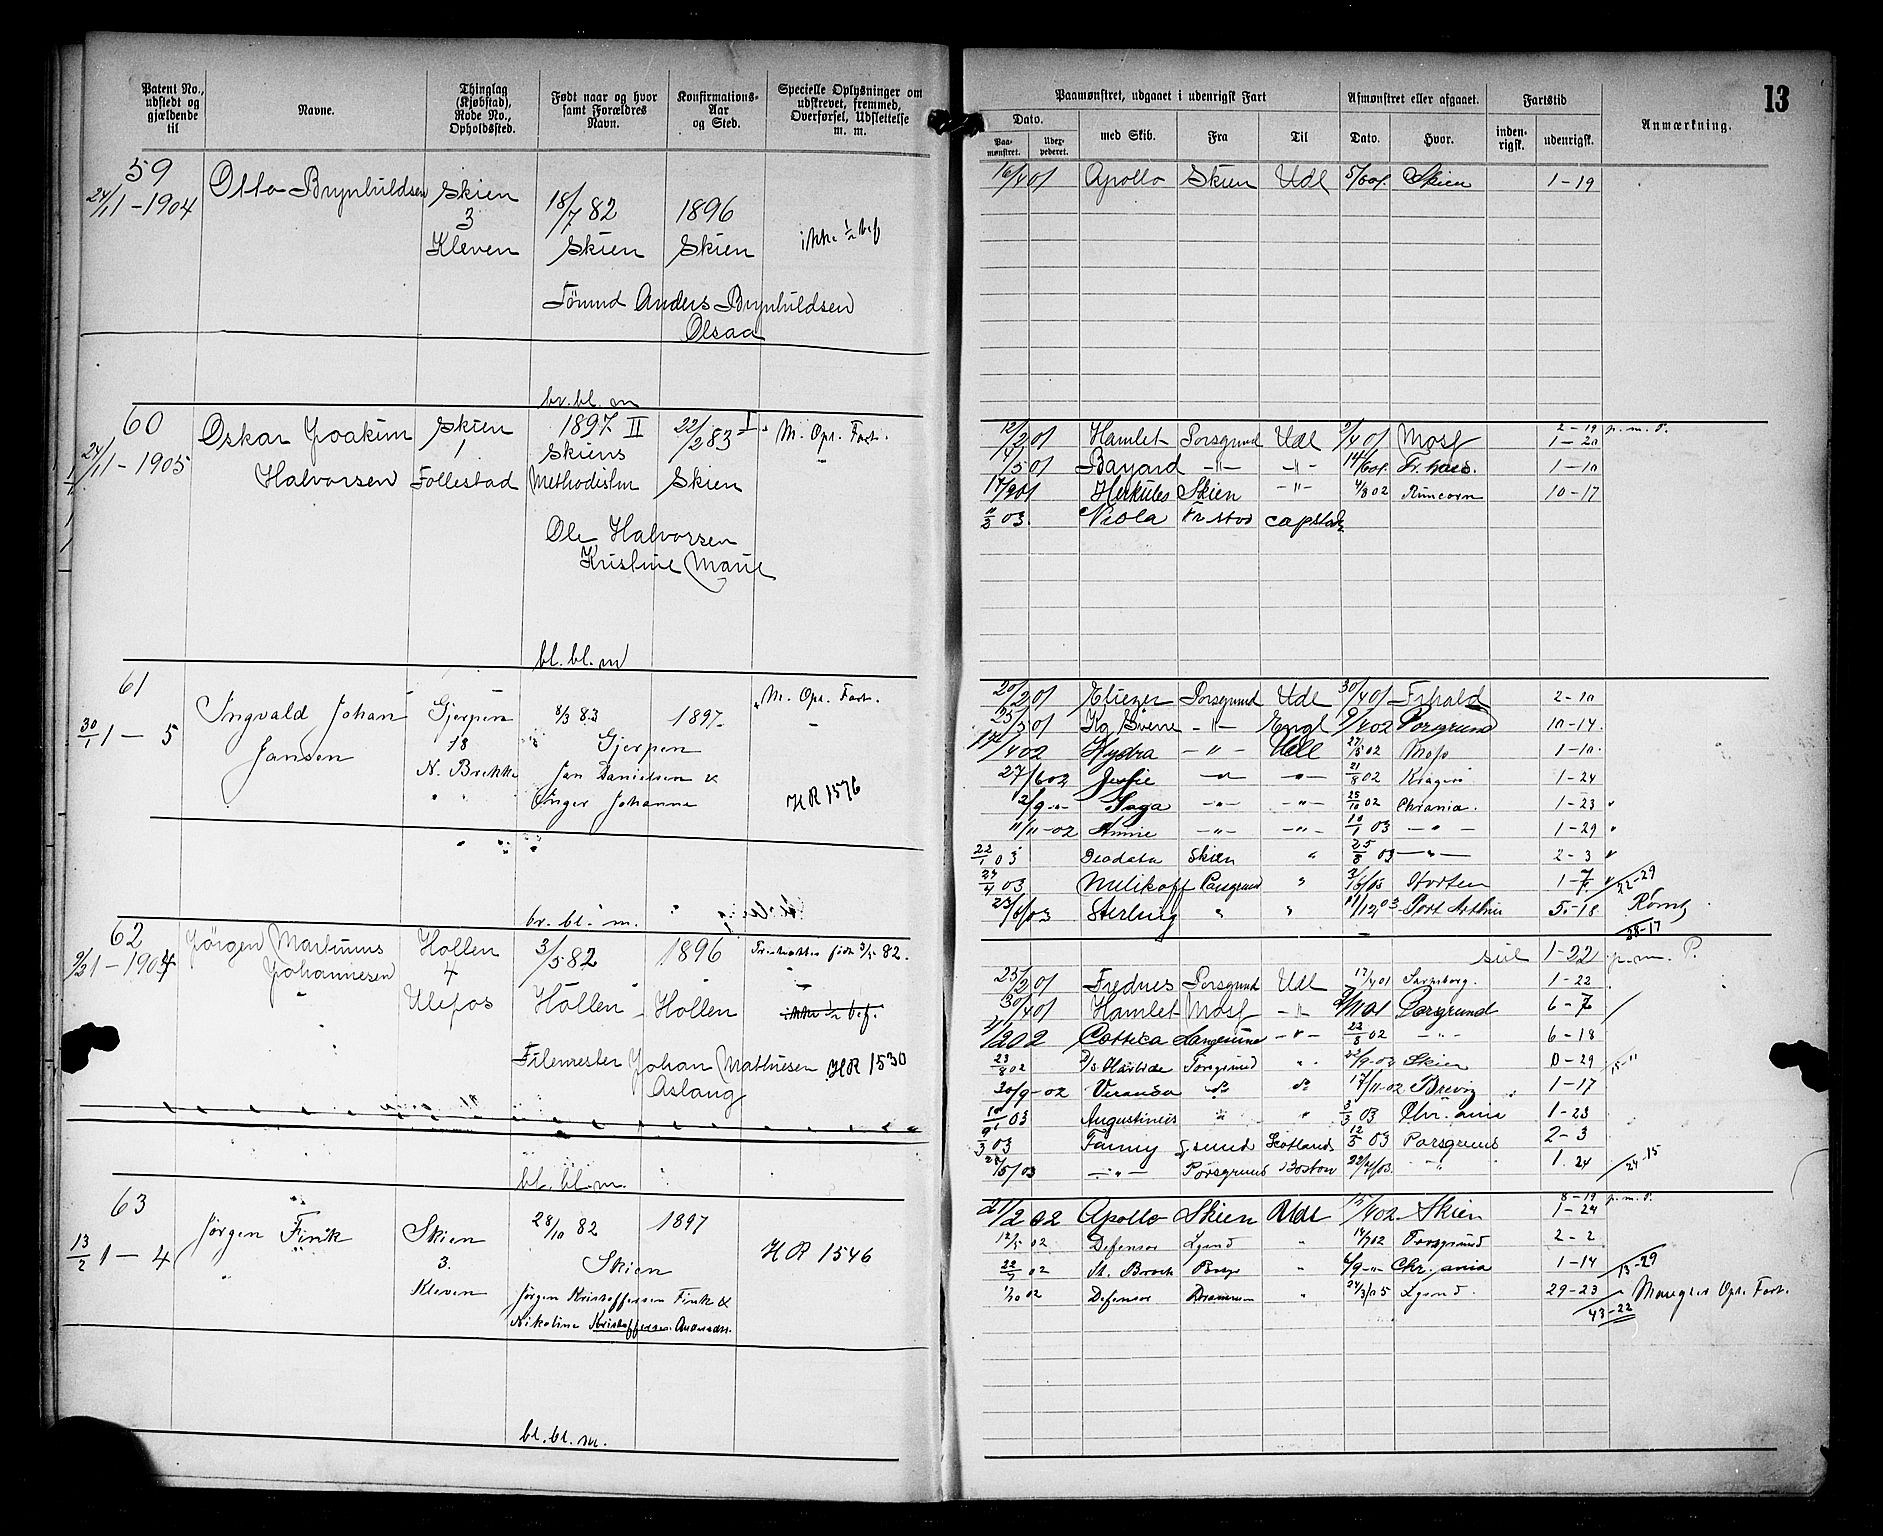 13
Patent No., udstedt og gjældende til
Navne.
Thinglag (Kjøbstad), Rode No., Opholdssted.
Født naar og hvor samt Forældres Navn.
Konfirmations-Aar og Sted.
Specielle Oplysninger om udskrevet, fremmed, Overførsel, Udslettelse m. m.
Paamønstret, udgaaet i udenrigsk Fart
Afmønstret eller afgaaet.
Fartstid
Anmærkning.
Dato.
med Skib.
Fra
Til
Dato.
Hvor.
inden-rigsk.
udenrigsk.
Paa-mønstret.
59
24/11-1904
Otto Brynhuldsen
Skien
3
Kleven
18/7 82
Skien
1896
Skien
ikke ½ bef
Anders Brynhuldsen
Olsaa
br. bl. m
16/4 01 Apollo Skien Udl 5/6 01. Skien 1-19
60
24/11-1905
Oskar Joakim
Halvorsen
Skien
1
Follestad
1897 II
Skiens
22/2 83 I
Skien
M. Opr. Fart.
Ole Halvorsen
Kristine Marie
bl. bl. m
2-19 p. m. P.
12/2 01 Hamlet Porsgrund Udl /4 01 Moss 1-20
/5 01 Bayard -"- -"- 14/6 01. Fr. hald. 1-10
17/9 01 Herkules Skien -"- 4/8 02 Runcorn 10-17
11/2 03. Viola Fr. stad capstad
61
30/1 1-5
Ingvald Johan
Jansen
Gjerpen
18
N. Brekke
8/3 83
Gjerpen
Jan Danielsen &
Inger Johanne
1897-
M. Opr. Fart.
HR 1576
br. bl. m.
20/2 01 Eliezer Porsgrund Udl 30/4 01 Frhald 2-10
25/5 01 Kg. Sverre -"- Engl 9/4 02 Porsgrund 10-14.
14/4 02 Hydra -"- Udl 27/5 02 Moss 1-10.
27/6 02 Jessie -"- -"- 21/8 02 Kragerø 1-24
2/9 -"- Saga -"- -"- 25/10 02 Chrania. 1-23
11/11-02 Annie -"- -"- 10/1 03 -"- 1-29
22/1 03 Deodata Skien " 25/8 03 -"- 2-3
27/4 03 Melikoff Porsgrund " 3/6/05 Horten 1-7 22-29
23/6/03 Sterling " " 11/12 03 Port Arthur 5-18 Rømt
28-17
62
9/2 1-1904
Jørgen Martinius
Johannesen
Hollen
4
Ulefos
3/5 82
Hollen
1896
Hollen
født 3/5 82.
ikke ½ bef.
Filemester Johan Mathiesen HR 1530
Aslaug
bl. bl. m.
seil 1-22 p. m. P.
25/2 01 Frednes Porsgrund Udl 17/4 01 Sarpsborg. 1-22
30/4 01 Hamlet Moss -"- /11 01 Porsgrund 6-7
4/2 02 Cottica Langesund -"- 22/8 02 -"- 6-18
23/8 02 Porsgrund " 22/9-02 Skien 0-29
30/9-02 17/11-02 Brevig 1-17
10/1 03 Augustinus " " 3/3 03 Chr. ania 1-23
9/3 03 Fanny Scotland 12/5 03 Porsgrund 2-3
28/5/03 -"- Porsgrund Boston 22/7/03. -"- 1.24 24-15
63
13/2 1-4
Jørgen Fink
Skien
3.
Kleven
28/10 82
Skien
Jørgen Kristoffersen Fink &
Nikoline Kristoffersen Andersdtr.
1897
HR 1546
bl. bl. m.
8-19 p. m. P.
21/2 02 Apollo Skien Udl 15/4 02 Skien 1-24
12/5 02 Defensor Lgsnd " 14/7 02 Porsgrund 2-2
22/7 02 St. Broch Porsgr " 6/9 -"- Chr. ania 1-14 13-29
1/10 02 Defensor Drammen " 24/3/05 Lgsnd. 29-23 Mangler Opr. Fart.
43-22